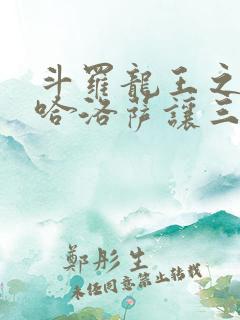 斗羅龍王之
哈洛薩讓三
鄭彤生
未經同意禁止轉載